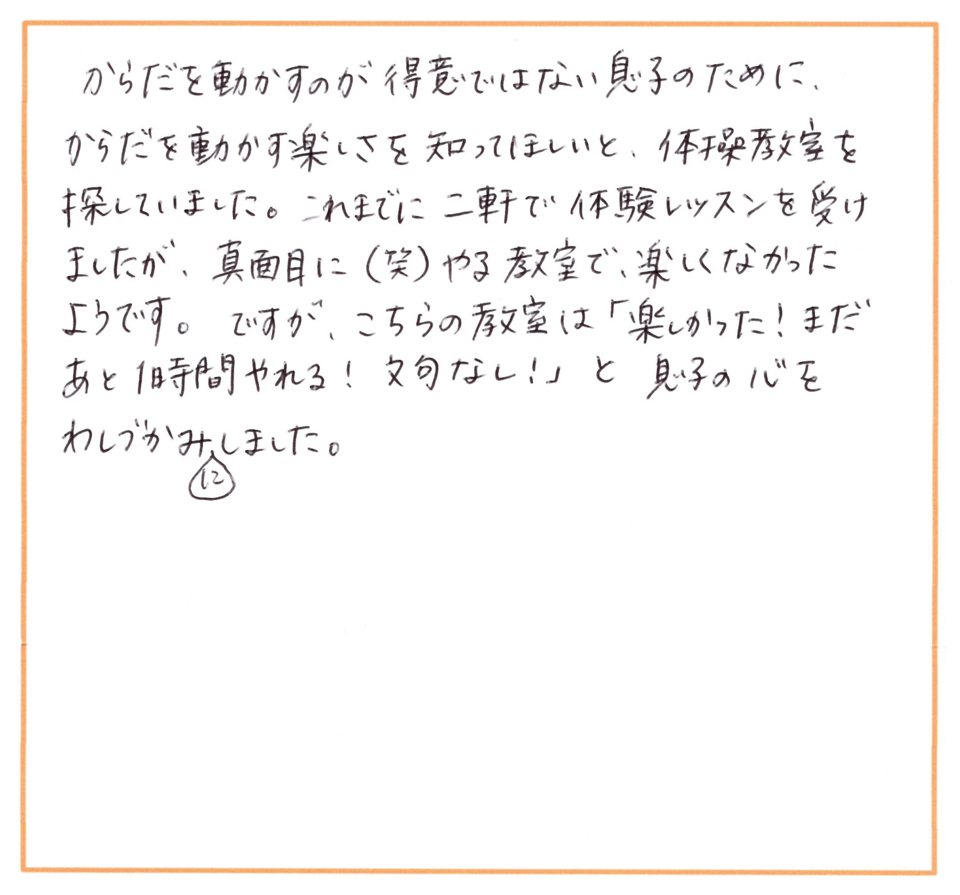 からだを動かすのが得意ではない息子のために、
からだを動かす楽しさを知ってほしいと、体操教室を
探していました。これまでに二軒で体験レッスンを受け
ましたが、真面目に(笑)やる教室で、楽しくなかった
ようです。ですが、こちらの教室は「楽しかった!まだ
あと1時間やれる!文句なし!」と息子の心を
わしづかみにしました。